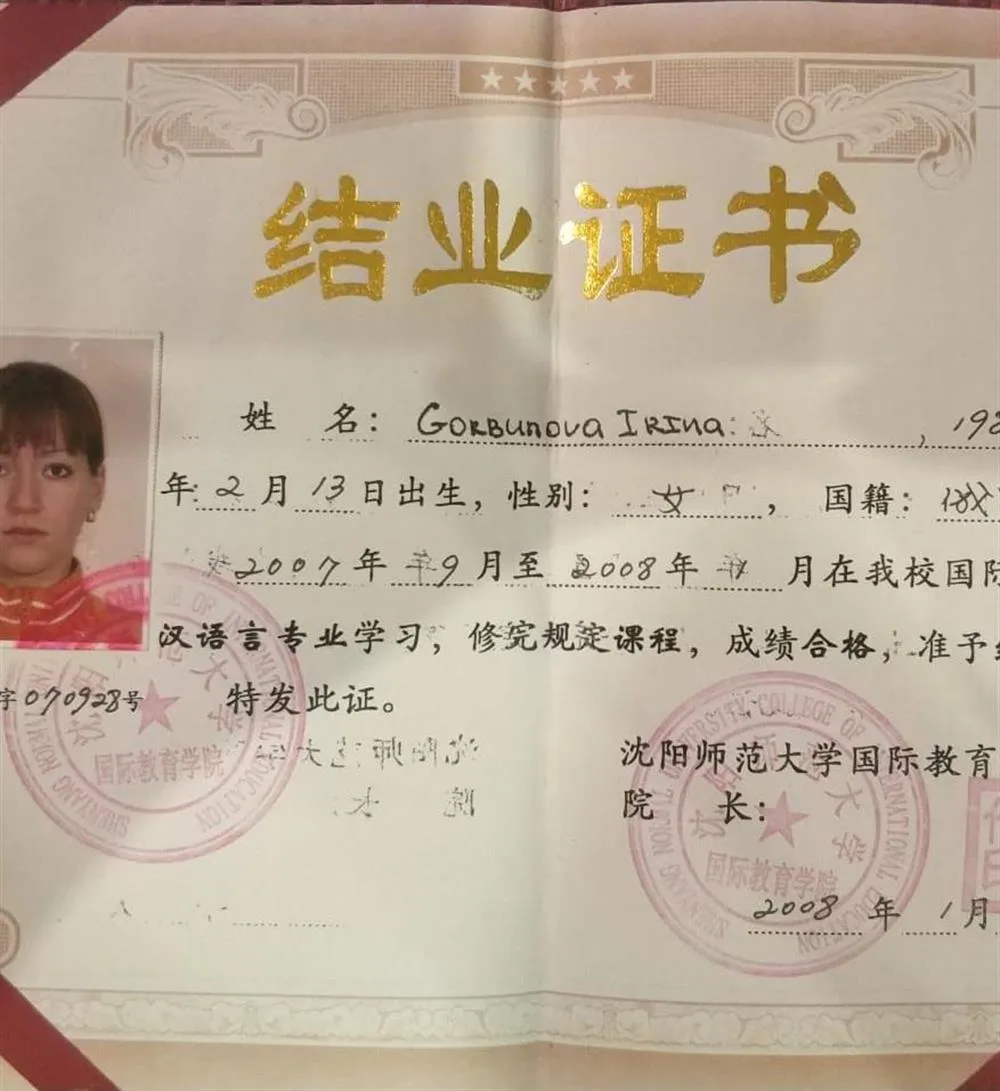 结业证书
姓 名: Gorbunova Irina , 198
年 2 月 13 日出生, 性别: 女 , 国籍:
2007 年 9 月至 2008 年 月在我校国际
汉语言专业学习, 修完规定课程, 成绩合格, 准予
字 070928 号 特发此证。
沈阳师范大学国际教育
院 长:
2008 年 1 月
沈阳师范大学
国际教育学院
SHENYANG NORMAL UNIVERSITY COLLEGE OF INTERNATIONAL EDUCATION
沈阳师范大学
国际教育学院
SHENYANG NORMAL UNIVERSITY COLLEGE OF INTERNATIONAL EDUCATION